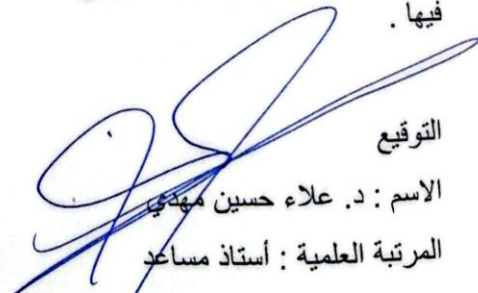 فيها .
التوقيع
الاسم : د. علاء حسين مهدي
المرتبة العلمية : أستاذ مساعد